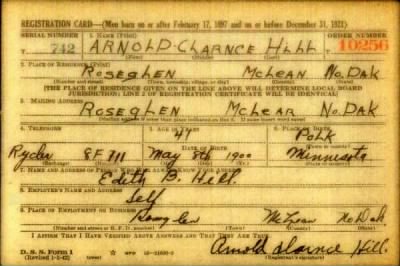 REGISTRATION CARD—(Men born on or after February 17, 1897 and on or before December 31, 1921)
SERIAL NUMBER 1. NAME (Print) ORDER NUMBER
T 742 ARNOLD CLARNCE HILL 10256
(First) (Middle) (Last)
2. PLACE OF RESIDENCE (Print)
ROSEGLEN McLEAN NO.DAK
(Number and street) (Town, township, village, or city) (County) (State)
[THE PLACE OF RESIDENCE GIVEN ON THE LINE ABOVE WILL DETERMINE LOCAL BOARD
JURISDICTION; LINE 2 OF REGISTRATION CERTIFICATE WILL BE IDENTICAL]
3. MAILING ADDRESS
ROSEGLEN McLEAR NO.DAK
4. TELEPHONE 5. AGE IN YEARS 6. PLACE OF BIRTH
41 POLK
DATE OF BIRTH
Ryder 8F 711 May 8th 1900 Minnesota
(Exchange) (Number) (Mo.) (Day) (Yr.) (State or country)
7. NAME AND ADDRESS OF PERSON WHO WILL ALWAYS KNOW YOUR ADDRESS
Edith B. Hill
8. EMPLOYER'S NAME AND ADDRESS
Self
9. PLACE OF EMPLOYMENT OR BUSINESS
McLean No Dak
(Number and street or R. F. D. number) (Town) (County) (State)
I AFFIRM THAT I HAVE VERIFIED ABOVE ANSWERS AND THAT THEY ARE TRUE.
D. S. S. Form 1
(Revised 1-1-42) Arnold Clarnce Hill.